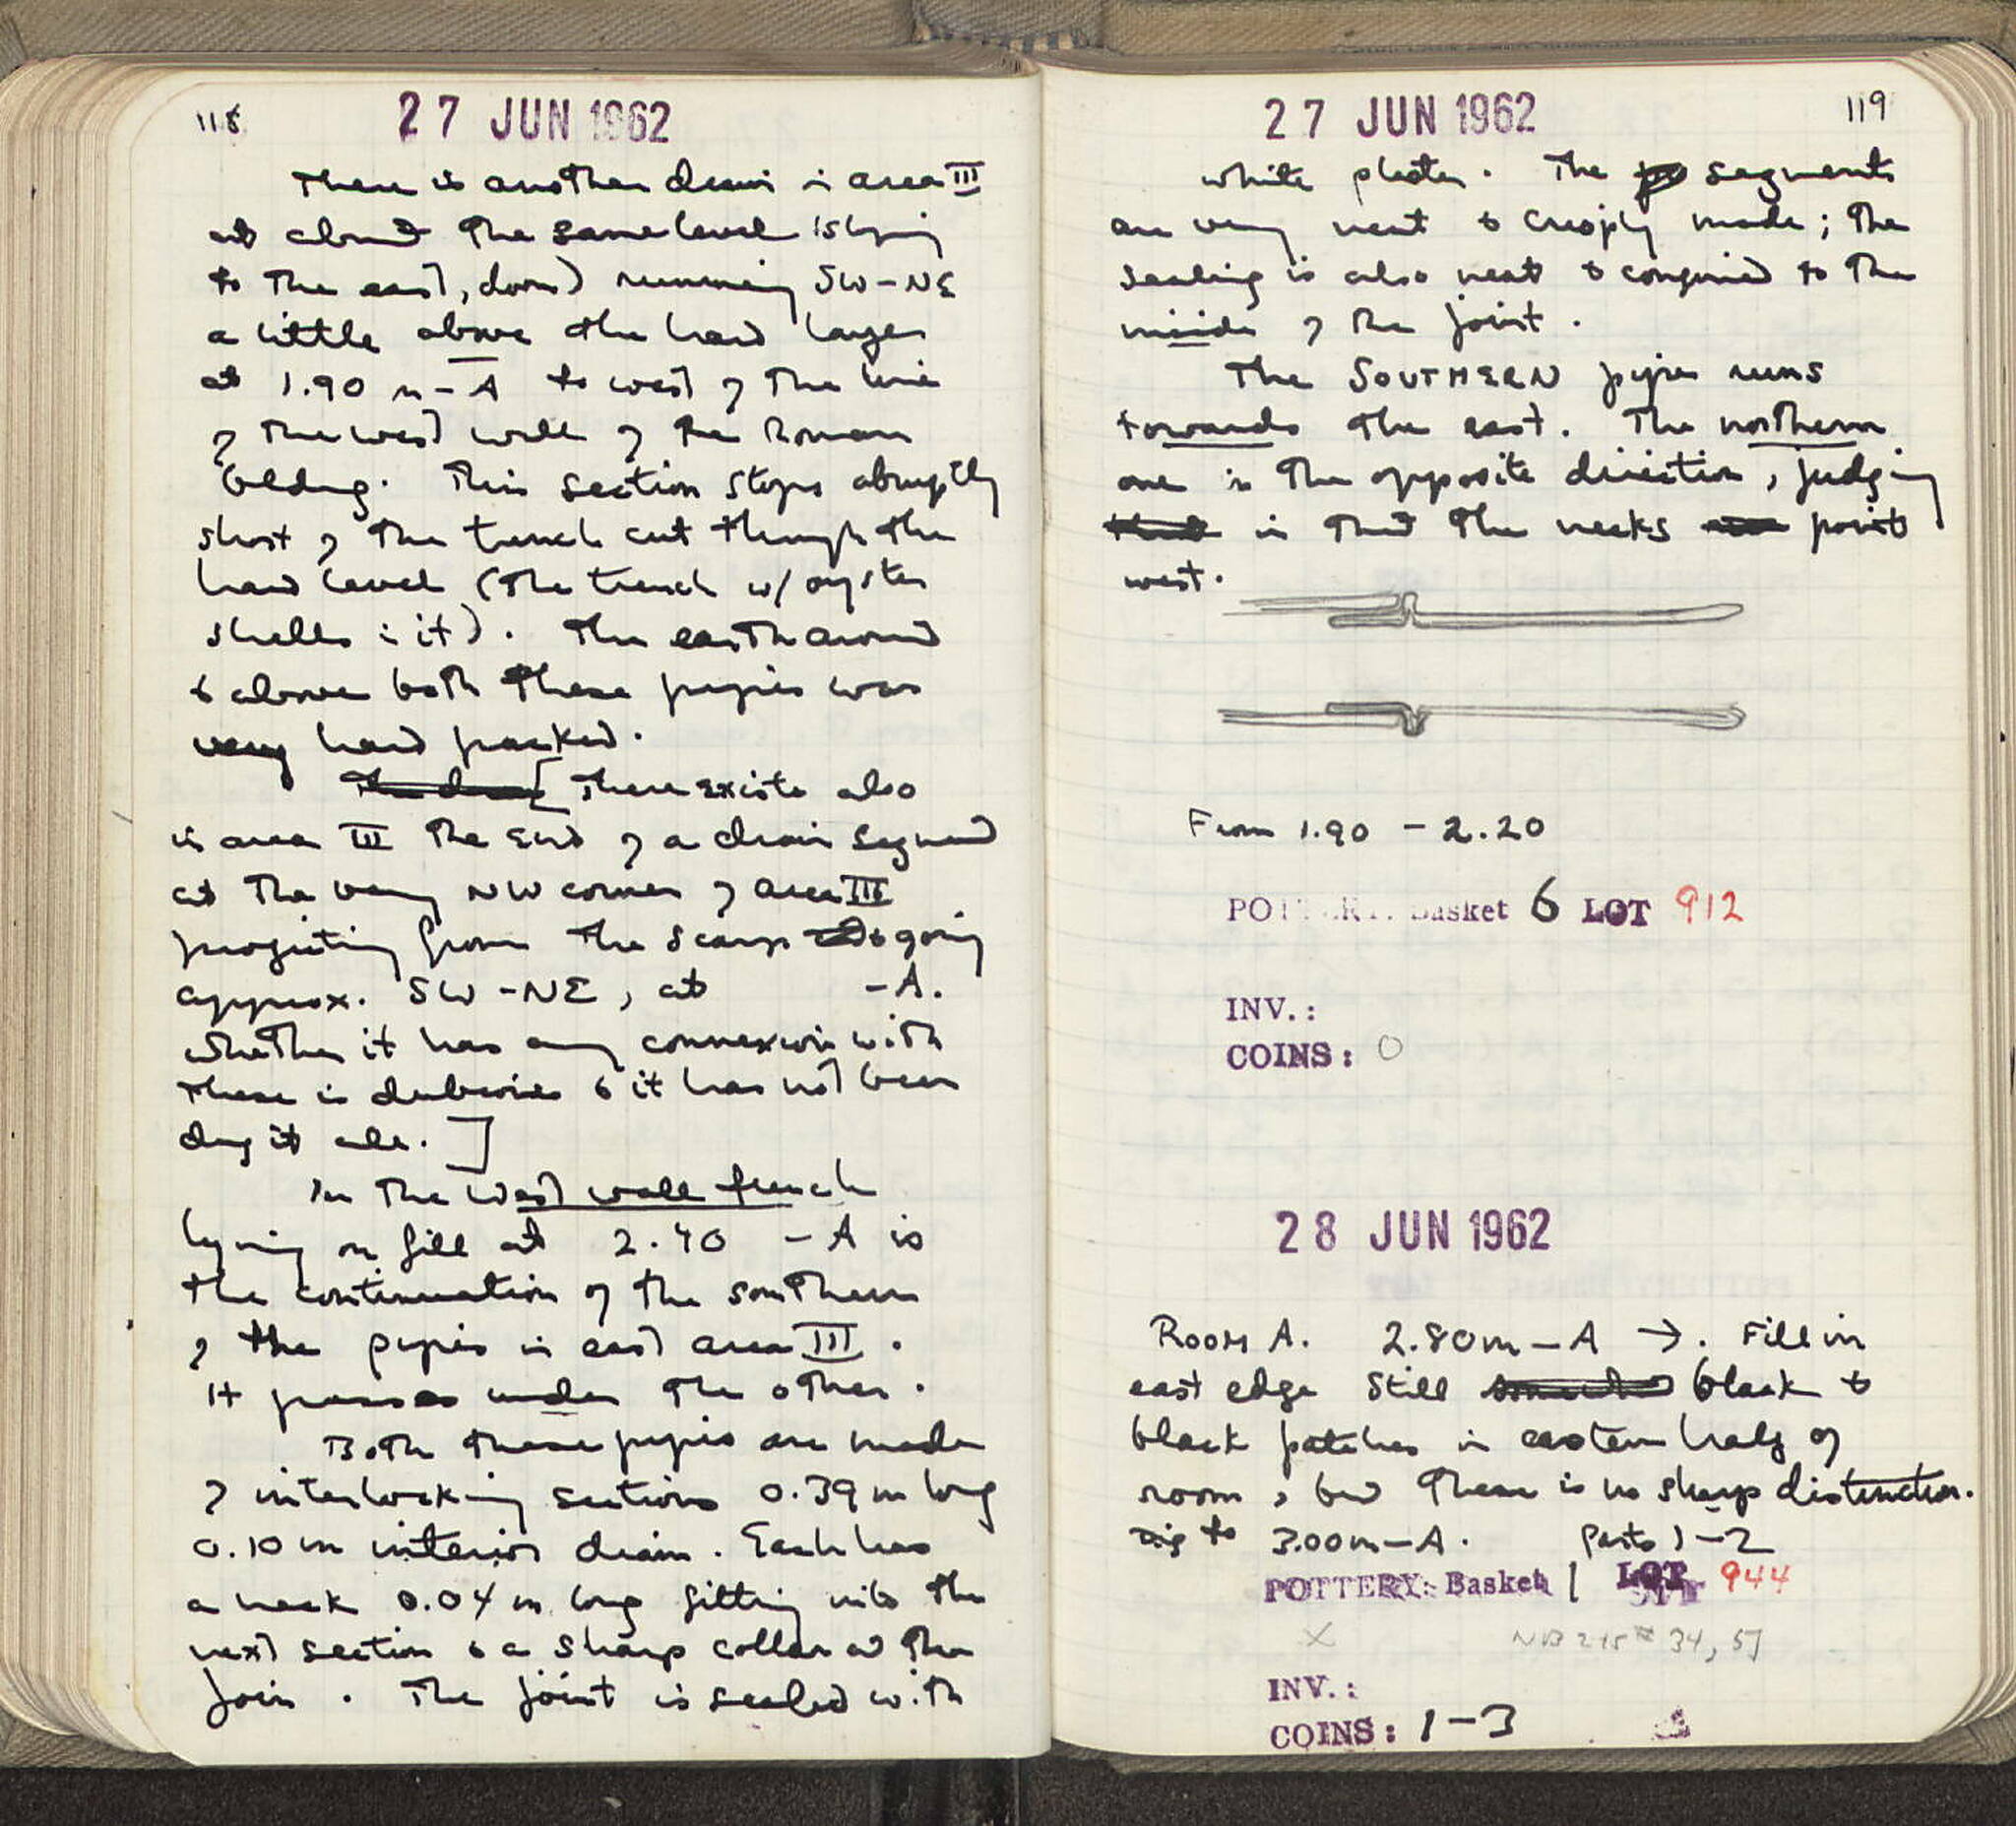 118
27 JUN 1962
There is another drain in area III
at about the same level (slying
to the east, down) running SW-NE
a little above the hard layer
at 1.90 m-A to west of the line
of the west wall of the Roman
bldng. This section stops abruptly
short of the trench cut through the
hard level (the trench w/ oyster
shells in it). The earth around
& above both these pipes was
very hard packed.
[There exists also
in area III the end of a drain segment
at the very NW corner of area III
projecting from the scarp & going
approx. SW-NE, at -A.
whether it has any connexion with
these is dubious & it has not been
dug it all.]
In the west wall trench
lying on fill at 2.40 -A is
the continuation of the southern
of the pipes in east area III.
It passes under the other.
Both these pipes are made
of interlocking sections 0.39 m long
0.10 m interior diam. Each has
a neck 0.04 m long fitting into the
next section & a sharp collar at the
join. The joint is sealed with
27 JUN 1962
119
white plaster. The segments
are very neat & crisply made; the
sealing is also neat & confined to the
inside of the joint.
The SOUTHERN pipe runs
towards the east. The northern
one in the opposite direction, judging
in that the necks point
west.
From 1.90 - 2.20
POTTERY: Basket 6 LOT 912
INV.:
COINS: 0
28 JUN 1962
ROOM A. 2.80m-A →. Fill in
east edge still black &
black patches in eastern half of
room, but there is no sharp distinction.
Dig to 3.00m-A. Parts 1-2
POTTERY: Basket 1 LOT 944
X NB 215 # 34, 51
INV.:
COINS: 1-3